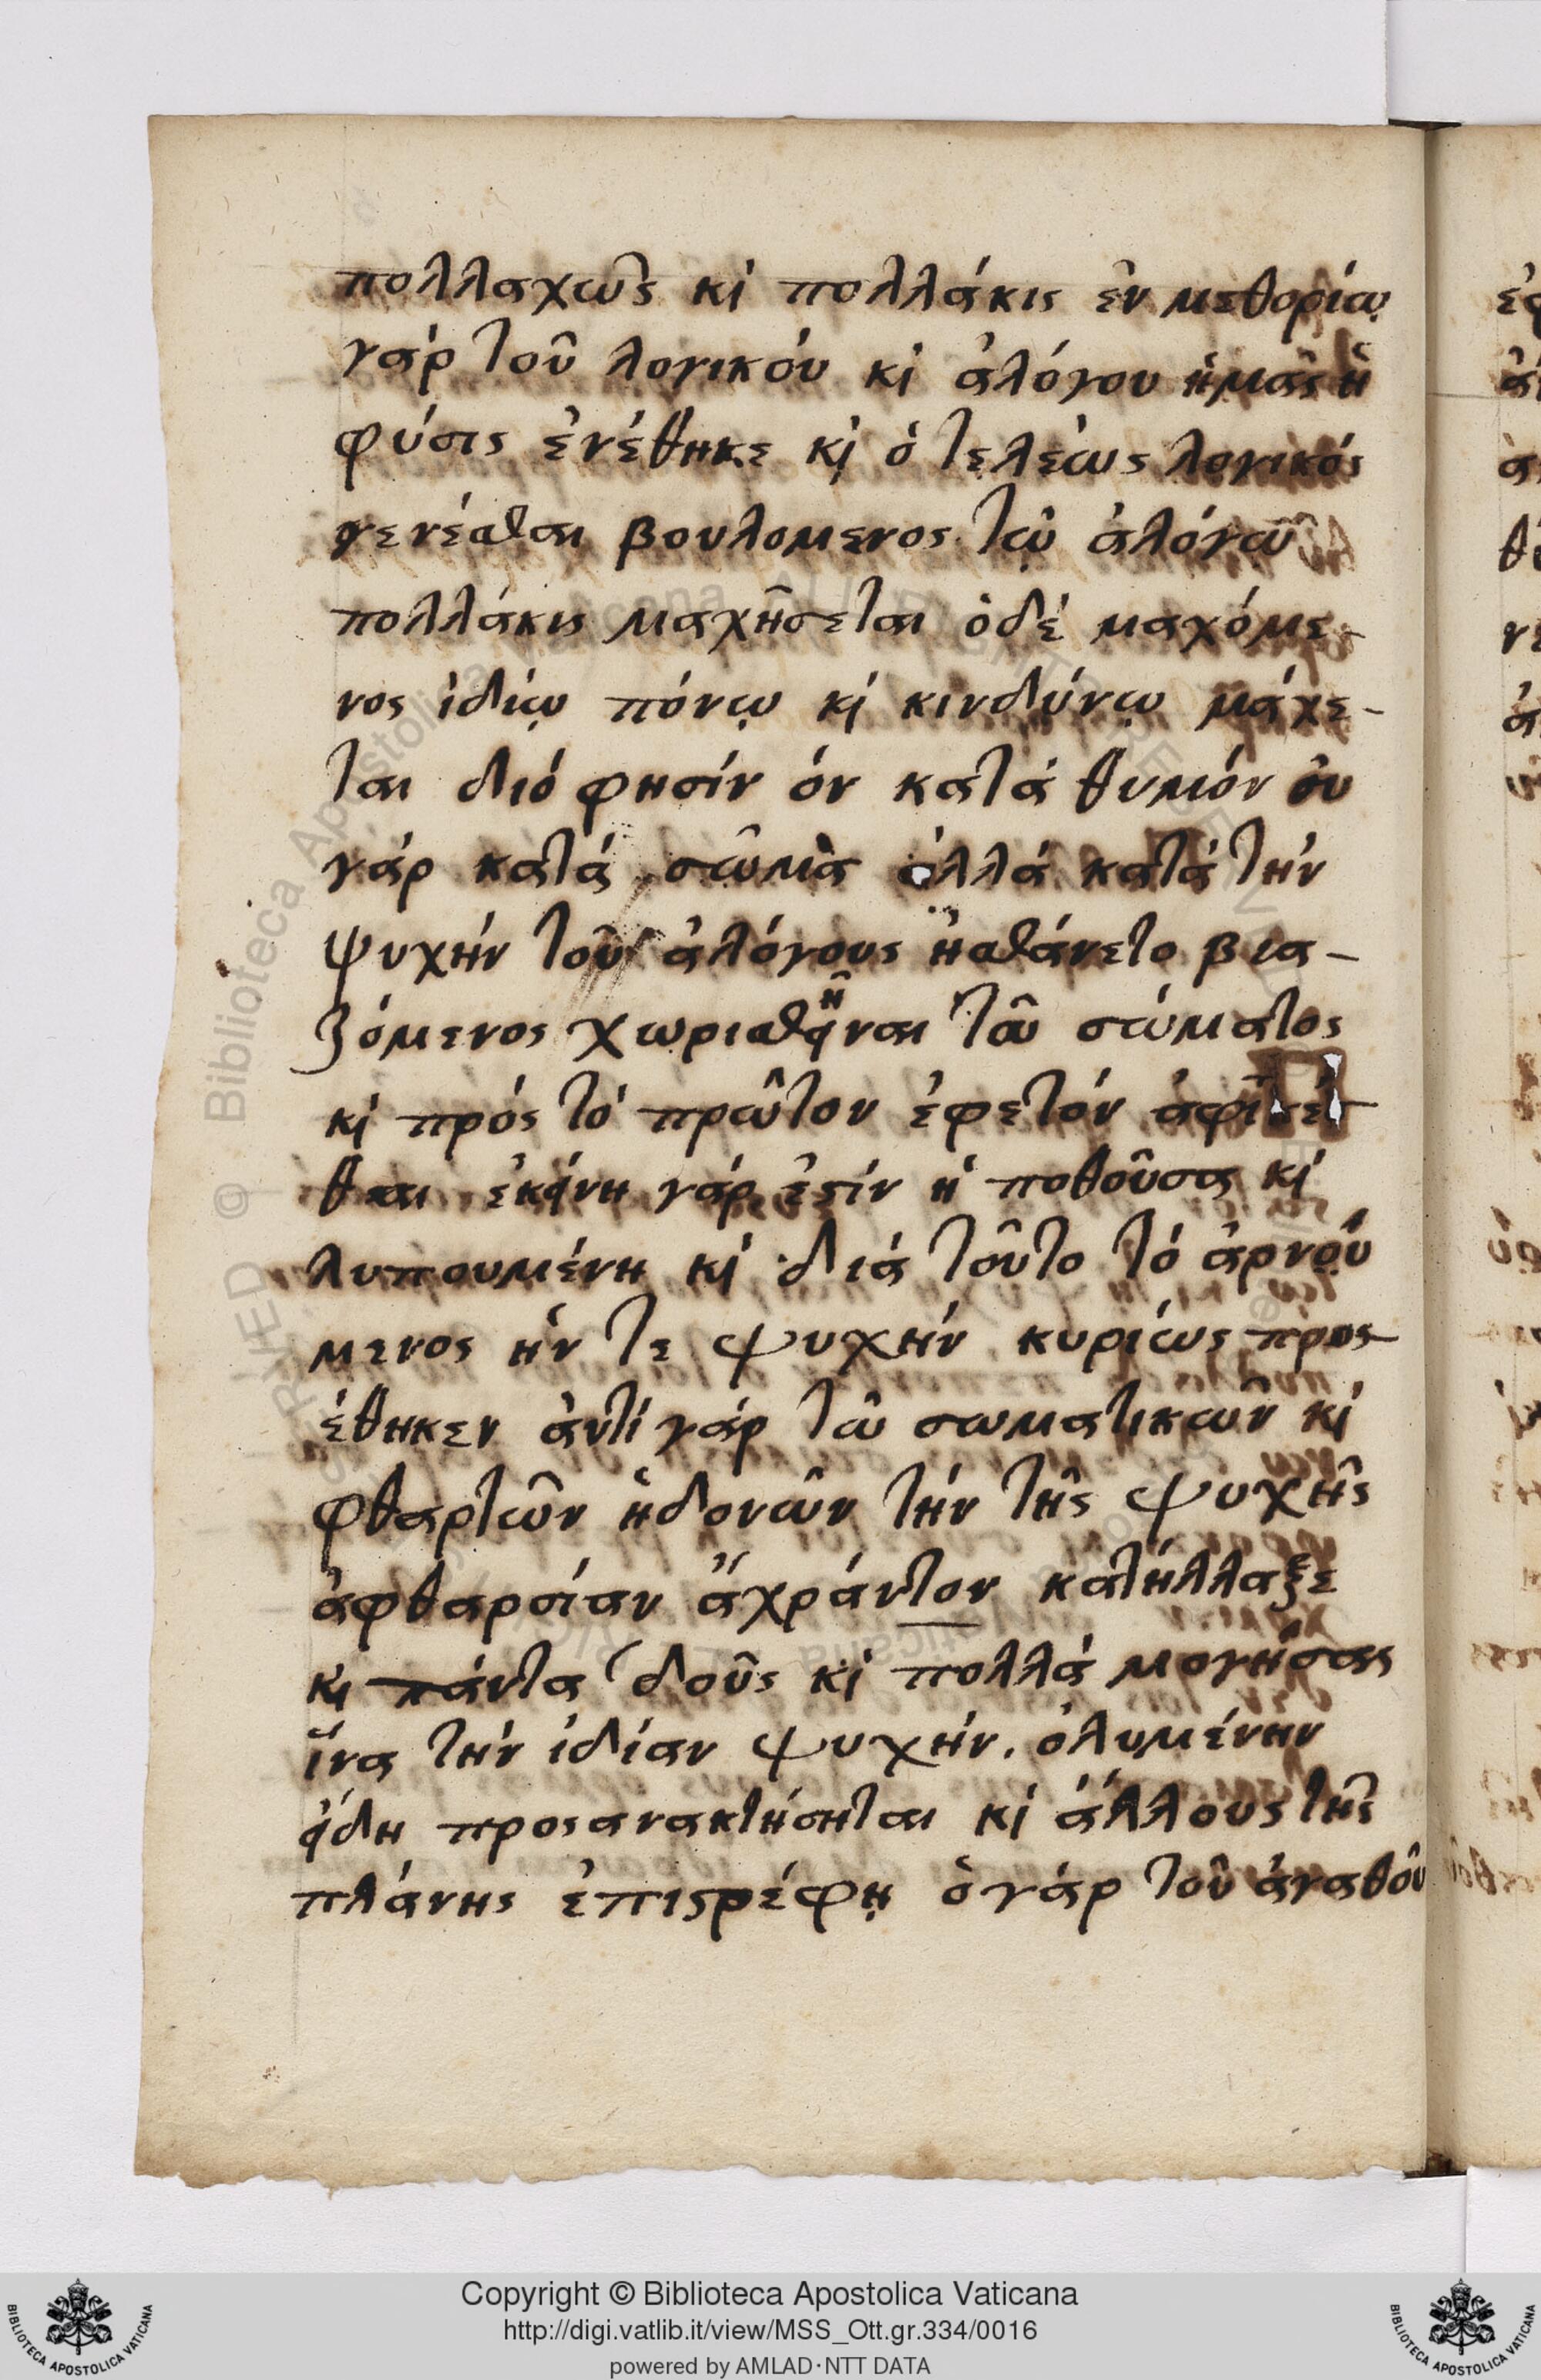 πολλαχῶς κὶ πολλάκις ἐν μεθορίῳ
γάρ τοῦ λογικόυ κὶ ἀλόγου ἡμᾶς ἡ
φύσις ἐνέθηκε κὶ ὁ τελέως λογικός
γενέσθαι βουλομενος τῷ ἀλόγῶ
πολλάκις μαχῆσεται ὁδέ μαχόμε-
νος ἰδίῳ πόνῳ κὶ κινδύνῳ μάχε-
ται διό φησίν όν κατά θυμόν ὀυ
γάρ κατά σῶμα ἀλλά κατά τήν
ψυχήν τοῦ ἀλόγους ἠσθάνετο βια-
ζόμενος χωρισθῆναι τοῦ σώματος
κὶ πρός τό πρῶτον ἐφετόν ἀφικέσ
θαι ἐκείνη γάρ ἐστίν ἡ ποθοῦσα κὶ
λυπουμένη κὶ διά τοῦτο τό ἀρνού
μενος ήν τε ψυχήν κυρίως προς
έθηκεν ἀντί γάρ τῶ σωματικῶν κὶ
φθαρτῶν ἡδονῶν τήν τῆς ψυχῆς
ἀφθαρσίαν ἄχράντον κατήλλαξε
κὶ πάντα δοῦς κὶ πολλά μογήσας
ἵνα τήν ἰδίαν ψυχήν. ὀλυμένην
είδη προσανακτήσηται κὶ ἄλλους τῆς
πλάνης ἐπιστρέφῃ ὁ γάρ τοῦ ἀγαθοῦ
Copyright © Biblioteca Apostolica Vaticana
http://digi.vatlib.it/view/MSS_Ott.gr.334/0016
powered by AMLAD·NTT DATA
BIBLIOTECA APOSTOLICA VATICANA
BIBLIOTECA APOSTOLICA VATICANA